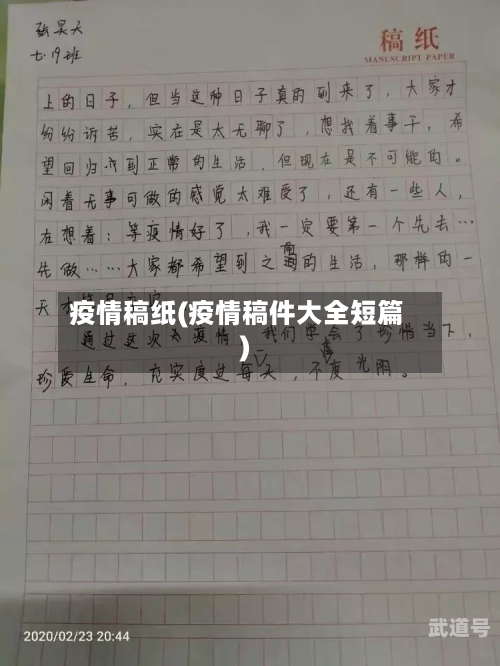 张昊天
七·19班
稿纸
MANUSCRIPT PAPER
上的日子，但当这种日子真的到来了，大家才
纷纷诉苦，实在是太无聊了，想找着事干，希
望回归到正常的生活，但现在是不可能的。
闲着无事可做的感觉太难受了，还有一些人，
在想着：等疫情好了，我一定要第一个先去…
先做……大家都希望回到之前的生活，那样的一
天才
疫情稿纸(疫情稿件大全短篇
)
通过这次大疫情，我们学会了珍惜当下，
珍爱生命，充实度过每天，不度光阴。
2020/02/23 20:44
武道号